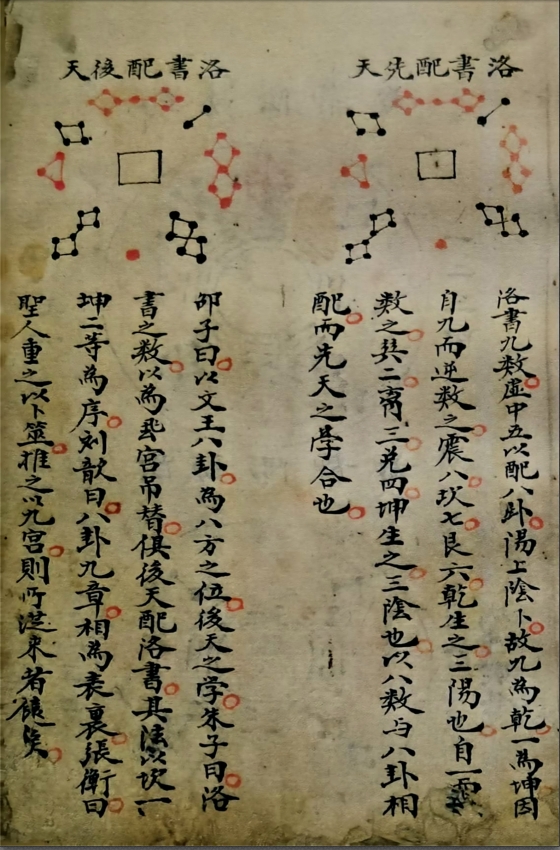 洛書配先天
洛書九數虛中五以配八卦陽上陰下故九為乾一為坤因
自九而逆數之震八坎七艮六乾生之三陽也自一
數之巽二离三兌四坤生之三陰也以八數与八卦相
配而先天之學合也
洛書配後天
邵子曰以文王八卦為八方之位後天之学朱子曰洛
書之數以為飛宮吊替俱後天配洛書其法以坎一
坤二等為序刘歆曰八卦九章相為表裏張衡曰
聖人重之以卜筮推之以九宮則所從來者遠矣